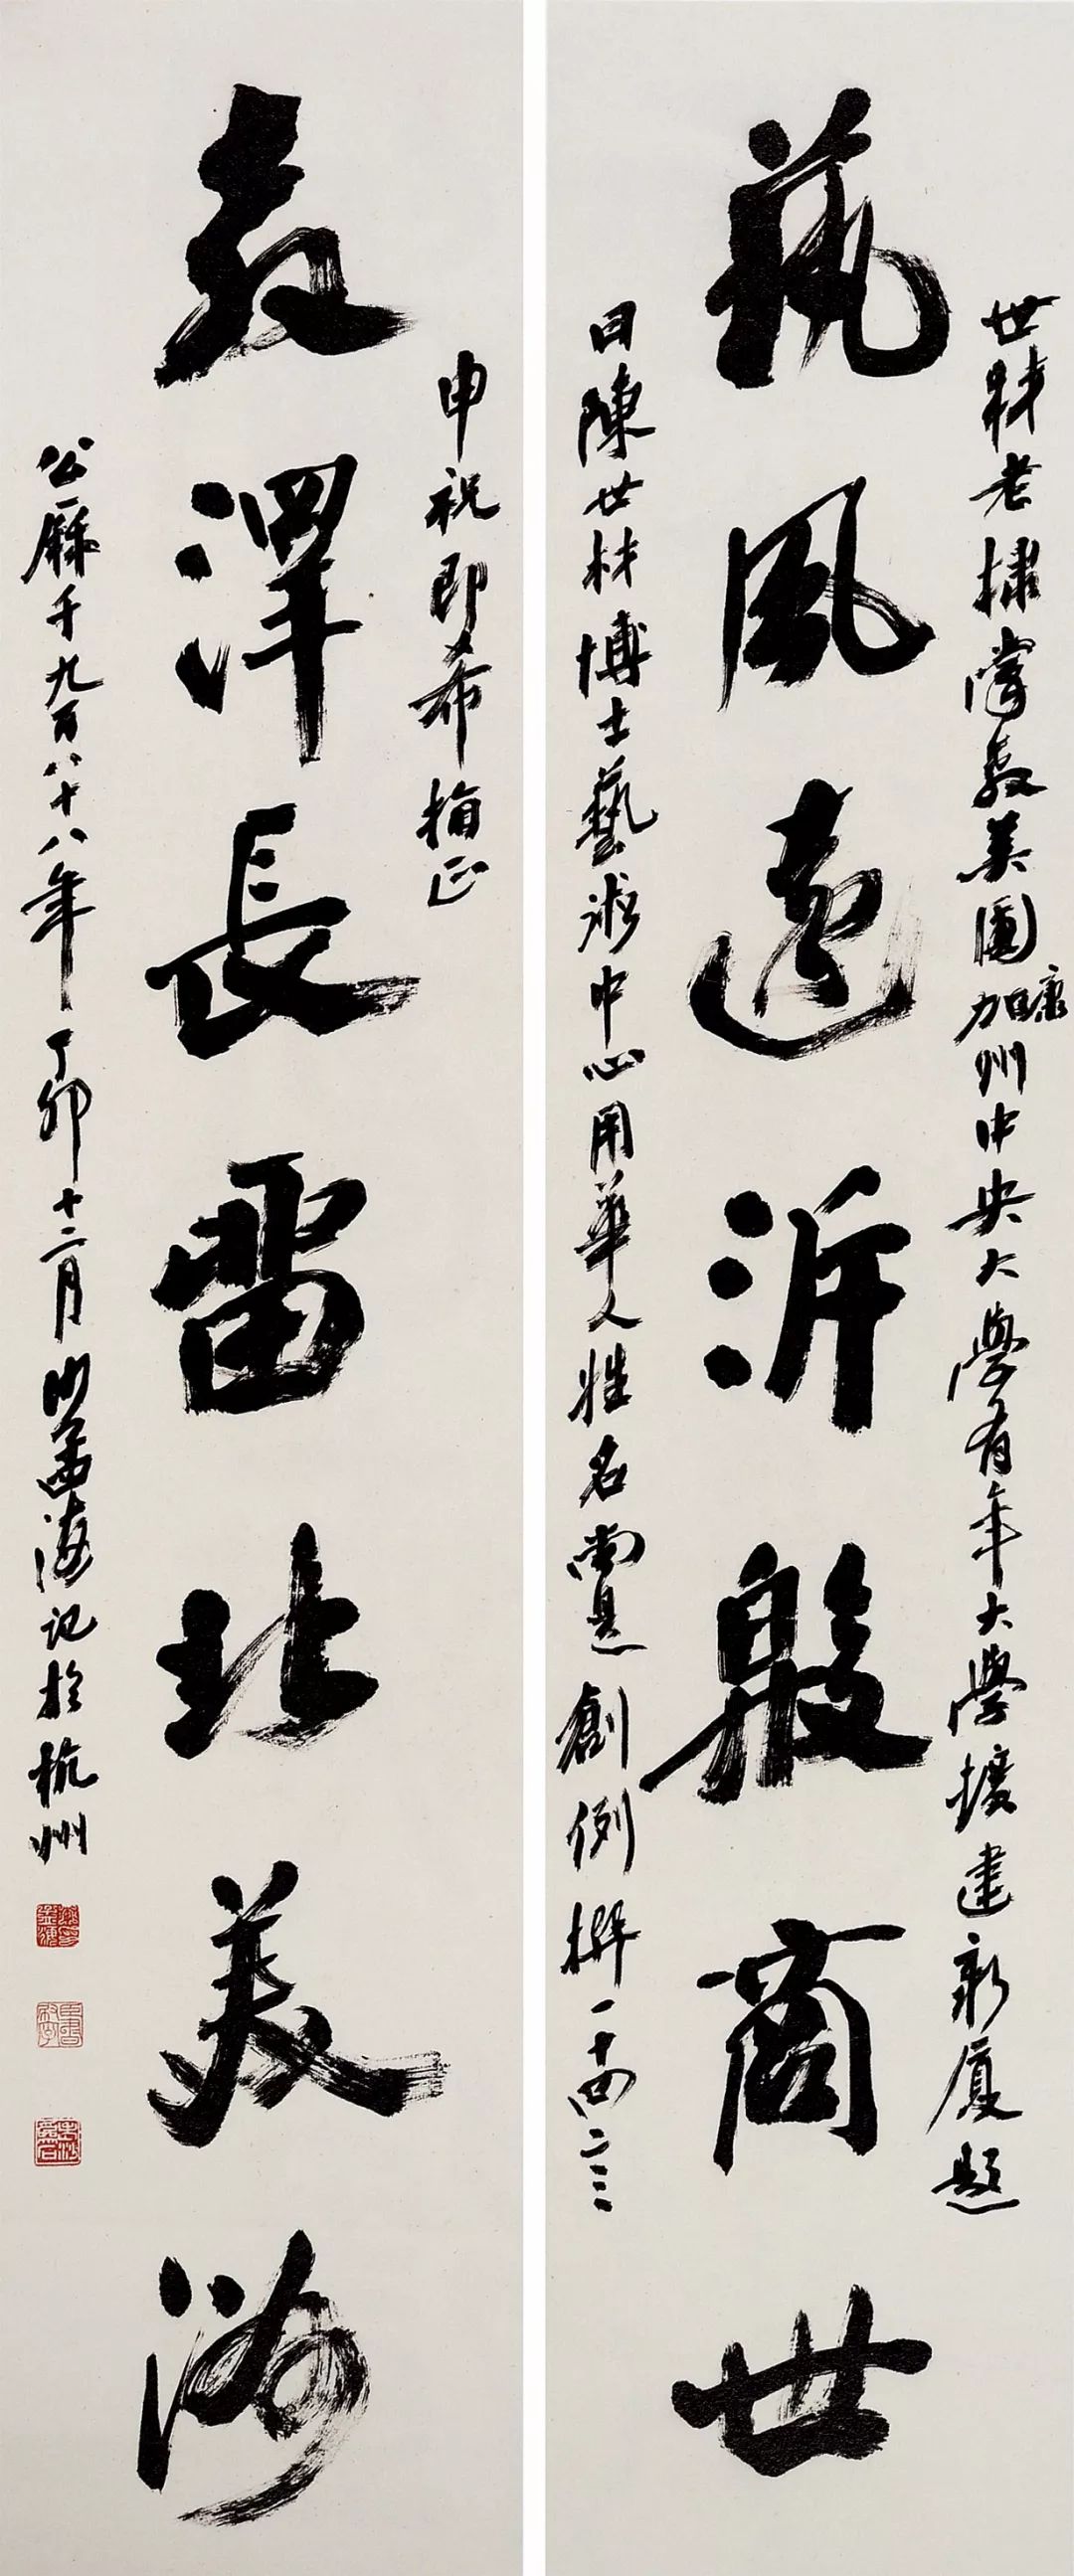 世材老棣掌教美國加康州中央大學有年大學擴建新廈題
藝風遠泝殷商世
曰陳世材博士藝術中心用華人姓名尚是創例撰一十四言
申祝即希指正
教澤長留北美洲
公曆千九百八十八年丁卯十二月沙孟海記於杭州